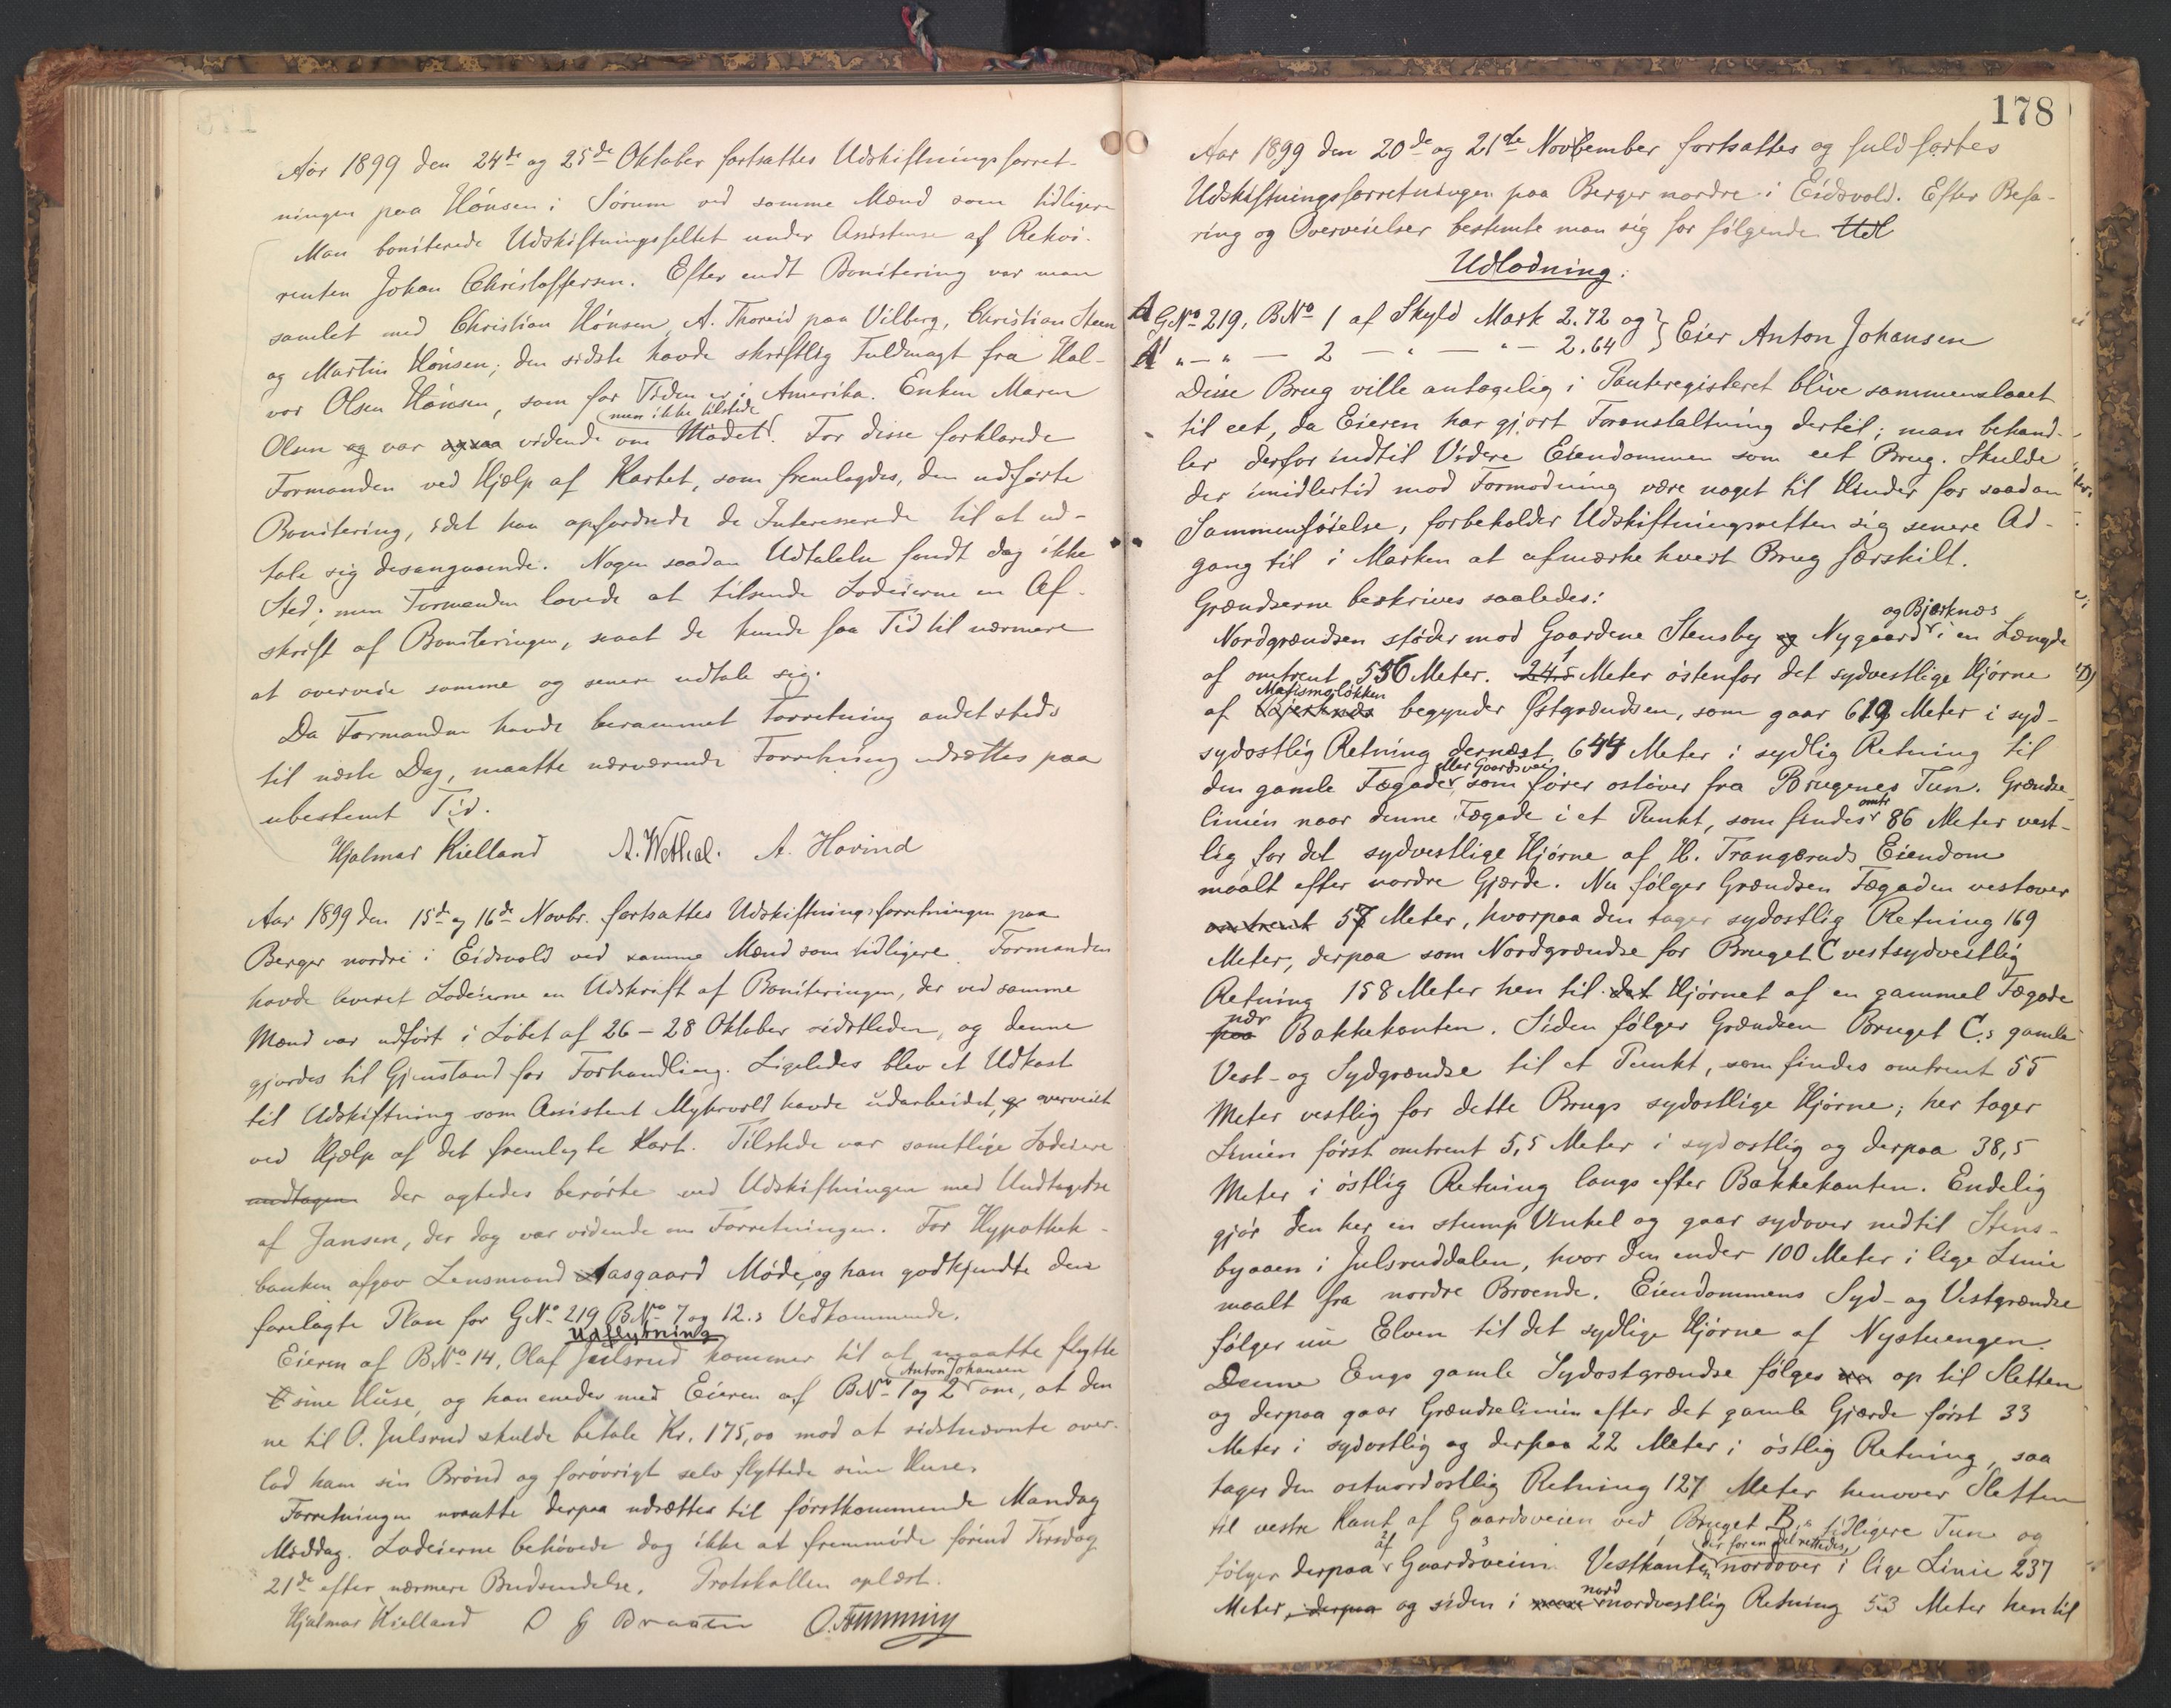 Aar 1899 den 24de og 25de Oktober fortsattes Udskiftningsforret-
ningen paa Hønsen i Sørum ved samme Mænd som tidligere
Man boniterede Udskiftningsfeltet under Assistense af Rekvi-
renten Johan Christoffersen. Efter endt Bonitering var man
samlet med Christian Hønsen, A. Thoreid paa Vilberg, Christian Steen
og Martin Hønsen; den sidste havde skriftlig Fuldmagt fra Hal-
vor Olsen Hønsen, som for Tiden er i Amerika. Enken Maren
Olsen og var ogsaa vidende om Mødet men ikke tilstede. For disse forklarede
Formanden ved Hjælp af Kartet, som fremlagdes, den udførte
Bonitering, idet han opfordrede de Interesserede til at ud-
tale sig desangaaende. Nogen saadan Udtalelse fandt dog ikke
Sted; men Formanden lovede at tilsende Lodeierne en Af-
skrift af Boniteringen, saaat de kunde faa Tid til nærmere
at overveie samme og senere udtale sig.
Da Formanden havde berammet Forretning andetsteds
til næste Dag, maatte nærværende Forretning udsættes paa
ubestemt Tid.
Hjalmar Kielland A. Wethal. A. Hovind
Aar 1899 den 15de og 16de Novbr. fortsattes Udskiftningsforretningen paa
Berger nordre i Eidsvold ved samme Mænd som tidligere. Formanden
havde leveret Lodeierne en Udskrift af Boniteringen, der ved samme
Mænd var udført i Løbet af 26 – 28 Oktober sidstleden, og denne
gjordes til Gjenstand for Forhandling. Ligeledes blev et Udkast
til Udskiftning som Assistent Mykvold havde udarbeidet, og overveiet
ved Hjælp af det fremlagte Kart. Tilstede var samtlige Lodeiere
undtagen der agtedes berørte ved Udskiftningen med Undtagelse
af Jansen, der dog var vidende om Forretningen. For Hypothek-
banken afgav Lensmand Aasgaard Møde, og han godkjendte den
forelagte Plan for GNo 219 BNo 7 og 12.s Vedkommende.
Udflytning
Eieren af BNo 14, Olaf Julsrud kommer til at maatte flytte
sine Huse, og han enedes med Eieren af BNo 1 og 2 Anton Johansen om, at den
ne til O. Julsrud skulde betale Kr. 175,00 mod at sidstnævnte over-
lod ham sin Brønd og forøvrigt selv flyttede sine Huse.
Forretningen maatte derpaa udsættes til førstkommende Mandag
Middag. Lodeierne behøvede dog ikke at fremmøde førend Tirsdag
21de efter nærmere Budsendelse. Protokollen oplæst.
Hjalmar Kielland O G Braaten O. Fremming
178
Aar 1899 den 20de og 21de November fortsattes og fuldførtes
Udskiftningsforretningen paa Berger nordre i Eidsvold. Efter Befa-
ring og Overveielser bestemte man sig for følgende Udl
Udlodning:
A GNo 219, BNo 1 af Skyld Mark 2.72 og } Eier Anton Johansen
A' " — " — 2 — " — " — 2.64
Disse Brug ville antagelig i Panteregisteret blive sammenslaaet
til eet, da Eieren har gjort Foranstaltning dertil; man behand-
ler derfor indtil Videre Eiendommen som eet Brug. Skulde
der imidlertid mod Formodning være noget til Hinder for saadan
Sammenføielse, forbeholder Udskiftningsretten sig senere Ad-
gang til i Marken at afmærke hvert Brug særskilt.
Grændserne beskrives saaledes:
Nordgrændsen støder mod Gaardene Stensby og Nygaard og Bjerknæs i en Længde
af omtrent 556 Meter. 241,5 Meter østenfor det sydvestlige Hjørne
af Bjerknæs Mafismoløkken begynder Østgrændsen, som gaar 619 Meter i syd-
sydostlig Retning dernæst 644 Meter i sydlig Retning til
den gamle Fægade eller Gaardsvei, som fører ostover fra Brugenes Tun. Grændse-
linien naar denne Fægade i et Punkt, som findes omtr 86 Meter vest-
lig for det sydvestlige Hjørne af H. Trangsruds Eiendom
maalt efter nordre Gjærde. Nu følger Grændsen Fægaden vestover
omtrent 57 Meter, hvorpaa den tager sydostlig Retning 169
Meter, derpaa som Nordgrændse for Bruget C vestsydvestlig
Retning 158 Meter hen til det Hjørnet af en gammel Fægade
paa nær Bakkekanten. Siden følger Grændsen Bruget C.s gamle
Vest- og Sydgrændse til et Punkt, som findes omtrent 55
Meter vestlig for dette Brugs sydostlige Hjørne; her tager
Linien først omtrent 5,5 Meter i sydostlig og derpaa 38,5
Meter i østlig Retning langs efter Bakkekanten. Endelig
gjør den her en stump Vinkel og gaar sydover nedtil Stens-
byaaen i Julsruddalen, hvor den ender 100 Meter i lige Linie
maalt fra nordre Broende. Eiendommens Syd- og Vestgrændse
følger nu Elven til det sydlige Hjørne af Nystuengen.
Denne Engs gamle Sydostgrændse følges nu op til Sletten
og derpaa gaar Grændselinien efter det gamle Gjærde først 33
Meter i sydostlig og derpaa 22 Meter i østlig Retning, saa
tager den ostnordostlig Retning 127 Meter henover Sletten
til vestre Kant af Gaardsveien ved Bruget B.s tidligere Tun og
følger derpaa af Gaardsveien Vestkanten der for en Del rettedes, nordover i lige Linie 237
Meter, derpaa og siden i nordnordvestlig Retning 53 Meter hen til